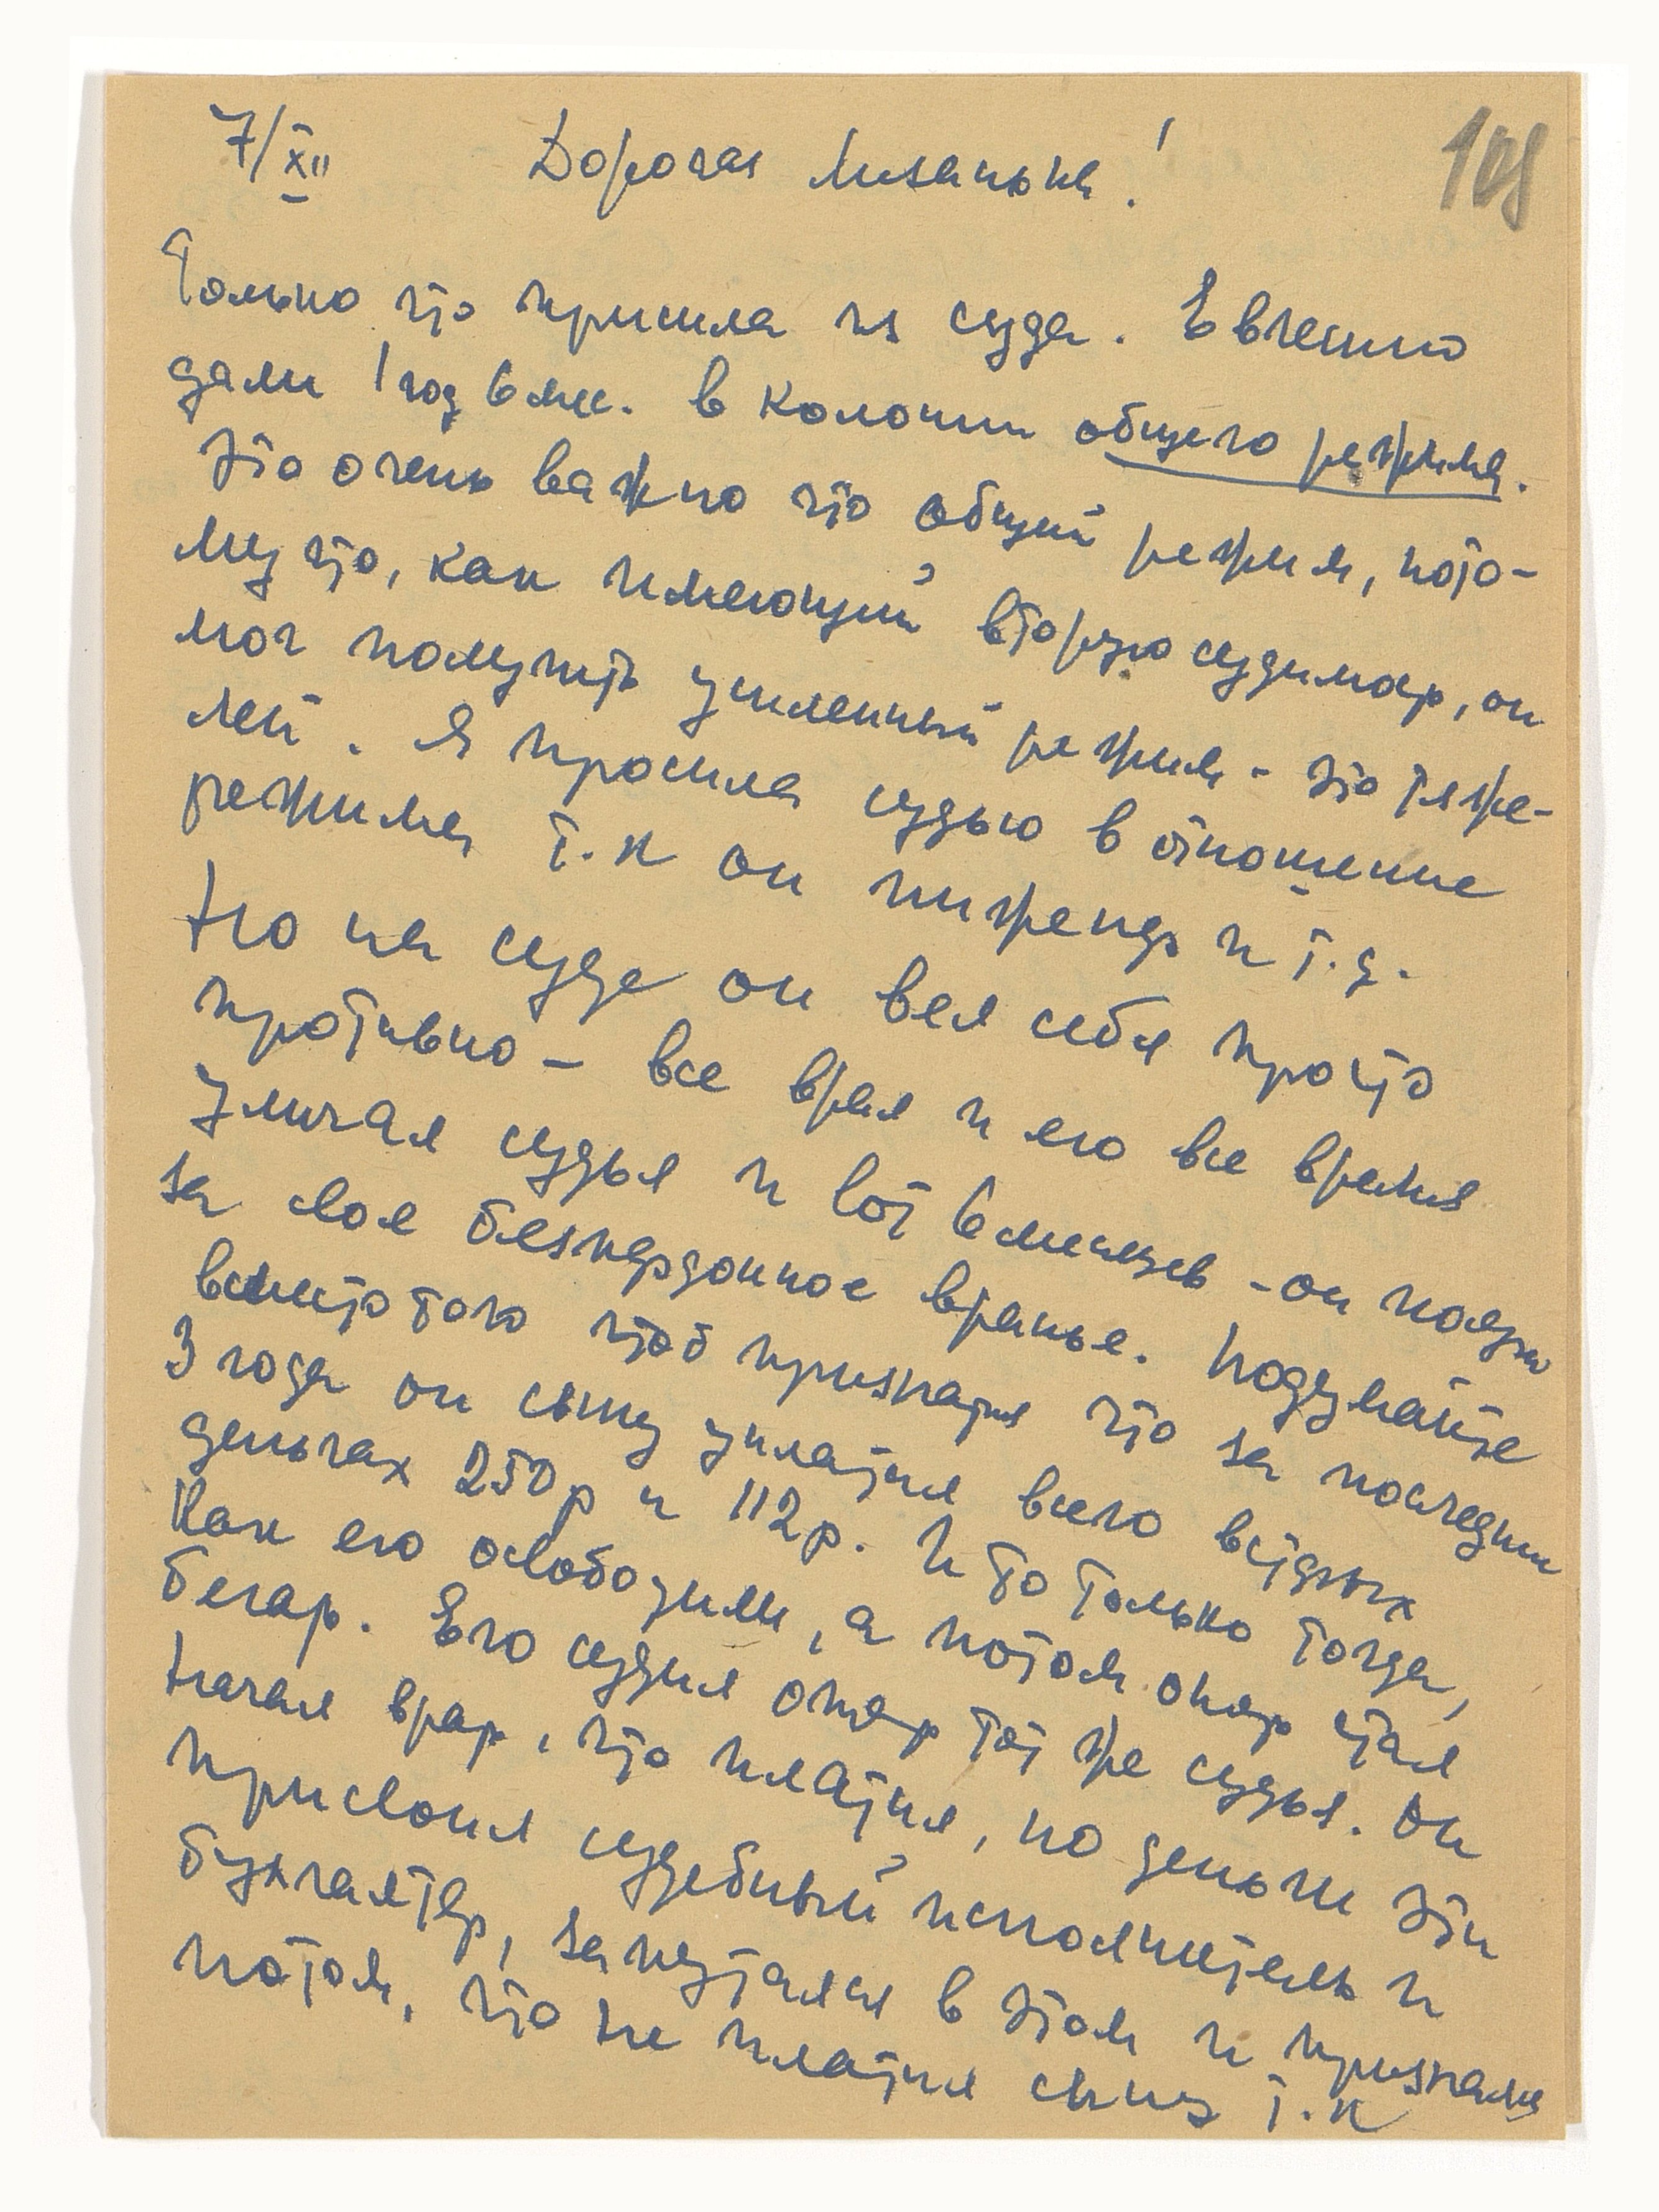 7/XII Дорогая Лизанька!
108
Только что пришла из суда. Евгению
дали 1 год 6 мес. в колонии общего режима.
Это очень важно что общий режим, пото-
му что, как имеющий вторую судимость, он
мог получить усиленный режим - это тяже-
лей. Я просила судью в отношение
режима т.к он инженер и т.д.
Но на суде он вел себя просто
противно - все врал и его все время
уличал судья и вот 6 месяцев - он получил
за свое безпардонное вранье. Подумайте
вместо того чтоб признаться что за последнии
3 года он сыну уплатил всего в старых
деньгах 250р и 112р. И то только тогда,
как его освободили, а потом опять стал
бегать. Его судил опять тот же судья. Он
начал врать, что платил, но деньги эти
присвоил судебный исполнитель и
бухгалтер, запутался в этом и признался
потом, что не платил сыну т.к